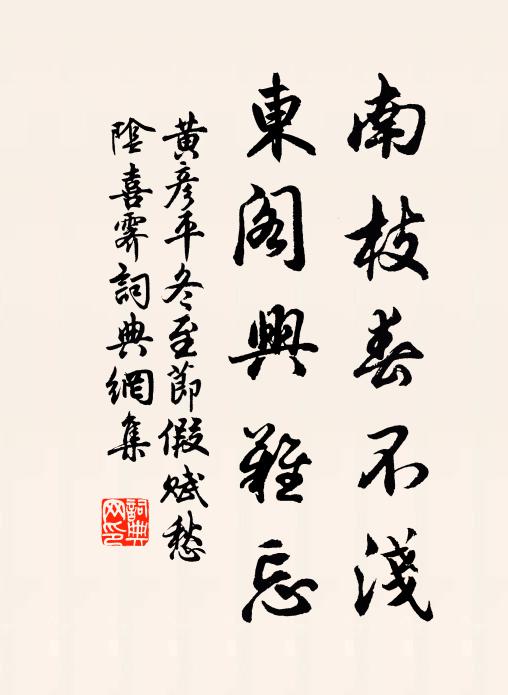 南枝春不淺
東閣興難忘
黃彥平冬至節假賦愁
陰喜霽詞典網集
詞典網印